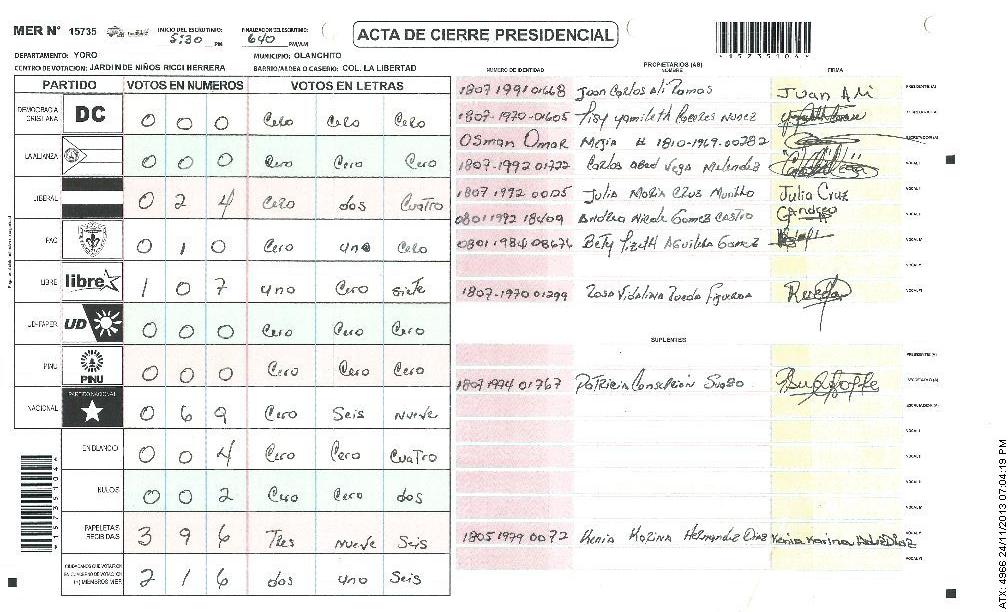 MER N° 15735
INICIO DEL ESCRUTINIO: 5:30 PM
FINALIZACION DEL ESCRUTINIO: 640 PM/AM
ACTA DE CIERRE PRESIDENCIAL
DEPARTAMENTO: YORO
MUNICIPIO: OLANCHITO
CENTRO DE VOTACION: JARDIN DE NIÑOS RICCI HERRERA
BARRIO/ALDEA O CASERIO: COL. LA LIBERTAD
PARTIDO VOTOS EN NUMEROS VOTOS EN LETRAS
DEMOCRACIA CRISTIANA DC 0 0 0 Cero Cero Cero
LA ALIANZA 0 0 0 Cero Cero Cero
LIBERAL 0 2 4 Cero dos Cuatro
PAC 0 1 0 Cero uno Cero
LIBRE libre 1 0 7 uno Cero siete
UD-FAPER UD 0 0 0 Cero Cero Cero
PINU PINU 0 0 0 Cero Cero Cero
NACIONAL PARTIDO NACIONAL 0 6 9 Cero Seis nueve
EN BLANCO 0 0 4 Cero Cero Cuatro
NULOS 0 0 2 Cero Cero dos
PAPELETAS RECIBIDAS 3 9 6 Tres nueve Seis
CIUDADANOS QUE VOTARON (+) MIEMBROS MER 2 1 6 dos uno Seis
PROPIETARIOS (AS)
NUMERO DE IDENTIDAD NOMBRE FIRMA
1807 1991 01668 Juan Carlos Ali Ramos Juan Ali PRESIDENTE (A)
1807-1970-01605 Yamileth Nunez
Osman Omar Mejia # 1810-1969-00282
1807-1992 01722 Carlos Abad Vega Melendez
1807 1992 Julia Maria Cruz Murillo Julia Cruz
0801 1992 18409 Andrea Nicole Gomez Castro Andrea
0801 1984 Bety Lizeth Aguilera Gomez
1807-1970 01299 Rosa Vidalina Rueda Figueroa Rueda
SUPLENTES
PRESIDENTE (A)
1807 1974 01767 Patricia Consepcion SECRETARIO (A)
ESCRUTADOR (A)
1805 1979 0072 Kenia Karina Hernandez Diaz Kenia Karina
ATX: 4966 24/11/2013 07:04:19 PM